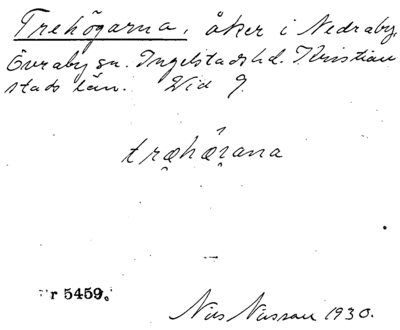 Trehögarna, åker i Nedraby,
Övraby sn. Ingelstads hd. Kristian
stads län. Wid 9.
træhæ̣rana
r 5459.
Nils Nilsson 1930.